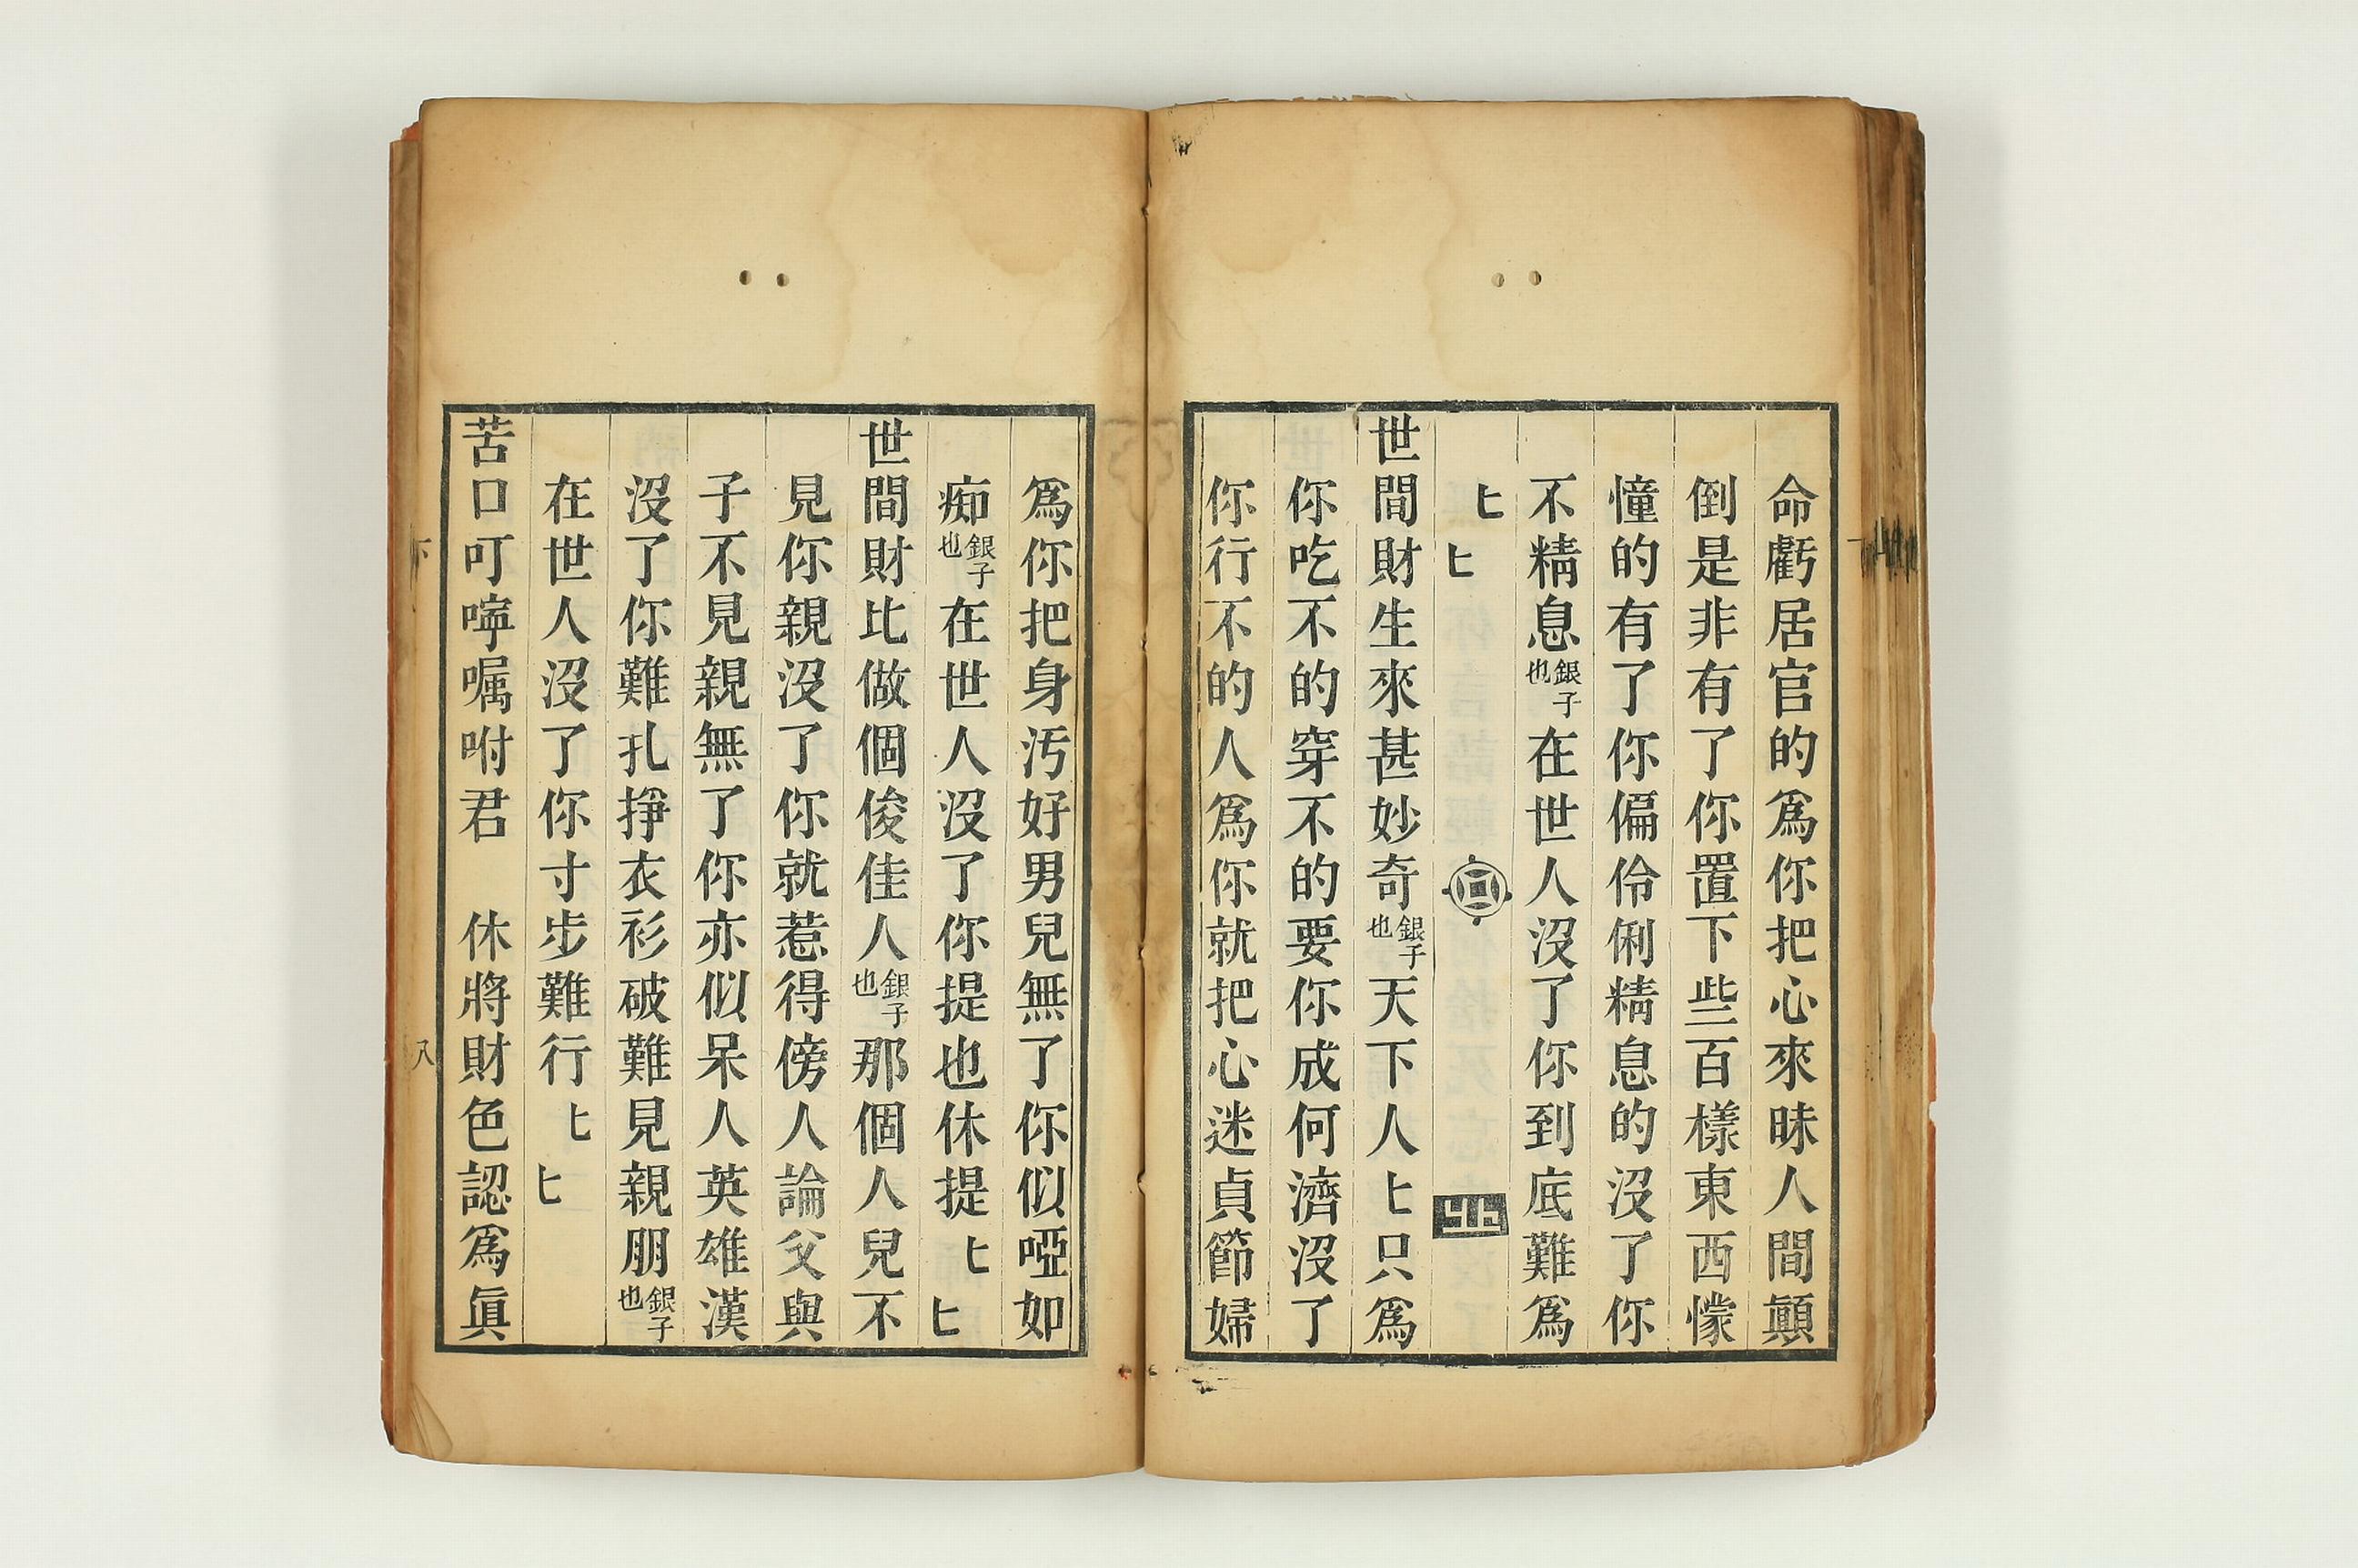 命虧居官的爲你把心來昧人間顚
倒是非有了你置下些百樣東西懞
憧的有了你偏伶俐精息的沒了你
不精息銀子也在世人沒了你到底難爲
匕匕
世間財生來甚妙奇銀子也天下人匕只爲
你吃不的穿不的要你成何濟沒了
你行不的人爲你就把心迷貞節婦
爲你把身汚好男兒無了你似啞如
痴銀子也在世人沒了你提也休提匕匕
世間財比做個俊佳人銀子也那個人兒不
見你親沒了你就惹得傍人論父與
子不見親無了你亦似呆人英雄漢
沒了你難扎掙衣衫破難見親朋銀子也
在世人沒了你寸步難行匕匕
苦口叮嚀嘱咐君　休將財色認爲眞
下
八